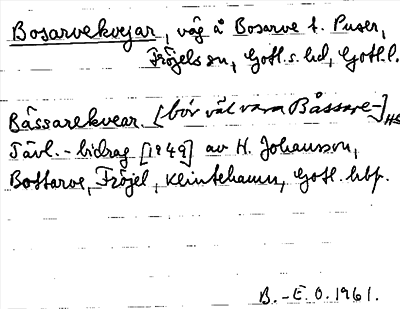 Bosarvekvejar, väg å Bosarve t. Puser,
Fröjels sn, Gotl. s. hd, Gotl. l.
Båssarekvear. [bör väl vara Båssare-] HS
Tävl.-bidrag [1949] av H. Johansson,
Bottarve, Fröjel, Klintehamn, Gotl. hbf.
B.-E. O. 1961.